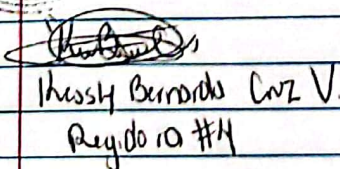 Kessly Bernarda Cruz V.
Regidora #4